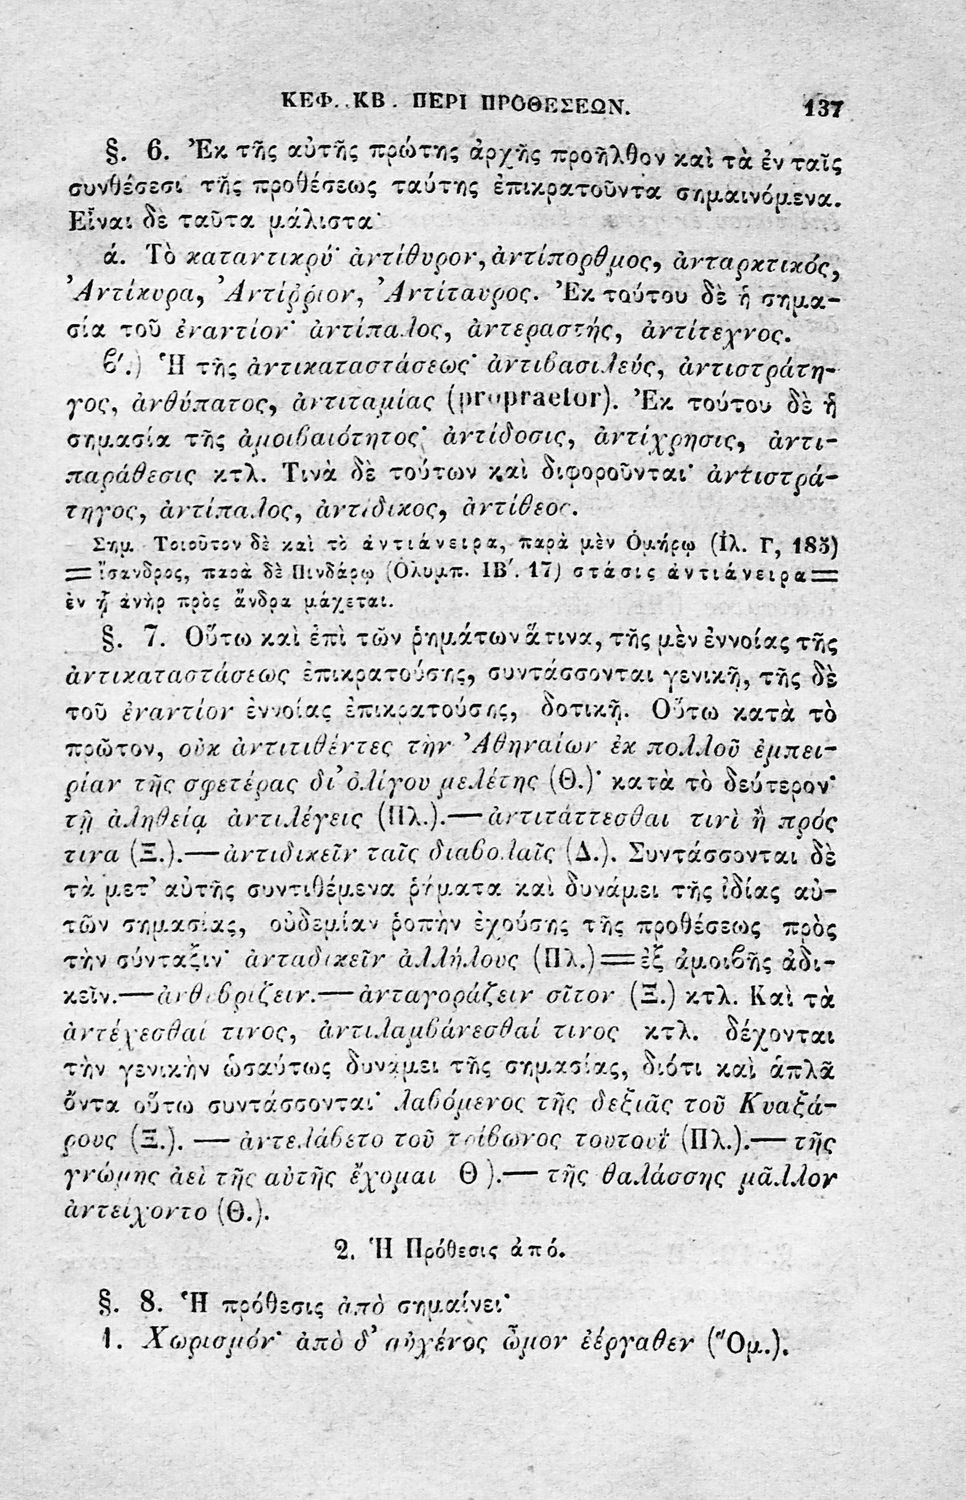 ΚΕΦ. ΚΒ. ΠΕΡΙ ΠΡΟΘΕΣΕΩΝ. 137
§. 6. Ἐκ τῆς αὐτῆς πρώτης ἀρχῆς προῆλθον καὶ τὰ ἐν ταῖς
συνθέσεσι τῆς προθέσεως ταύτης ἐπικρατοῦντα σημαινόμενα.
Εἶναι δὲ ταῦτα μάλιστα·
ά. Τὸ καταντικρύ· ἀντίθυρον, ἀντίπορθμος, ἀνταρκτικός,
Ἀντίκυρα, Ἀντίῤῥιον, Ἀντίταυρος. Ἐκ τούτου δὲ ἡ σημα-
σία τοῦ ἐναντίον· ἀντίπαλος, ἀντεραστής, ἀντίτεχνος.
ϐ´.) Ἡ τῆς ἀντικαταστάσεως· ἀντιβασιλεύς, ἀντιστράτη-
γος, ἀνθύπατος, ἀντιταμίας (propraetor). Ἐκ τούτου δὲ ἡ
σημασία τῆς ἀμοιβαιότητος· ἀντίδοσις, ἀντίχρησις, ἀντι-
παράθεσις κτλ. Τινὰ δὲ τούτων καὶ διφοροῦνται· ἀντιστρά-
τηγος, ἀντίπαλος, ἀντίδικος, ἀντίθεος.
Σημ. Τοιοῦτον δὲ καὶ τὸ ἀντιάνειρα, παρὰ μὲν Ὁμήρῳ (Ἰλ. Γ, 185)
= ἴσανδρος, παρὰ δὲ Πινδάρῳ (Ὀλυμπ. ΙΒ´. 17) στάσις ἀντιάνειρα=
ἐν ᾗ ἀνὴρ πρὸς ἄνδρα μάχεται.
§. 7. Οὕτω καὶ ἐπὶ τῶν ῥημάτων ἅτινα, τῆς μὲν ἐννοίας τῆς
ἀντικαταστάσεως ἐπικρατούσης, συντάσσονται γενικῇ, τῆς δὲ
τοῦ ἐναντίον ἐννοίας ἐπικρατούσης, δοτικῇ. Οὕτω κατὰ τὸ
πρῶτον, οὐκ ἀντιτιθέντες τὴν Ἀθηναίων ἐκ πολλοῦ ἐμπει-
ρίαν τῆς σφετέρας δι᾽ ὀλίγου μελέτης (Θ.)· κατὰ τὸ δεύτερον·
τῇ ἀληθείᾳ ἀντιλέγεις (Πλ.).—ἀντιτάττεσθαι τινὶ ἢ πρός
τινα (Ξ.).—ἀντιδικεῖν ταῖς διαβολαῖς (Δ.). Συντάσσονται δὲ
τὰ μετ᾽ αὐτῆς συντιθέμενα ῥήματα καὶ δυνάμει τῆς ἰδίας αὐ-
τῶν σημασίας, οὐδεμίαν ῥοπὴν ἐχούσης τῆς προθέσεως πρὸς
τὴν σύνταξιν· ἀνταδικεῖν ἀλλήλους (Πλ.)=ἐξ ἀμοιϐῆς ἀδι-
κεῖν.—ἀνθυβρίζειν.—ἀνταγοράζειν σῖτον (Ξ.) κτλ. Καὶ τὰ
ἀντέχεσθαί τινος, ἀντιλαμβάνεσθαί τινος κτλ. δέχονται
τὴν γενικὴν ὡσαύτως δυνάμει τῆς σημασίας, διότι καὶ ἁπλᾶ
ὄντα οὕτω συντάσσονται· λαβόμενος τῆς δεξιᾶς τοῦ Κυαξά-
ρους (Ξ.). — ἀντελάβετο τοῦ τρίβωνος τουτουΐ (Πλ.).— τῆς
γνώμης ἀεὶ τῆς αὐτῆς ἔχομαι Θ).— τῆς θαλάσσης μᾶλλον
ἀντείχοντο (Θ.).
2. Ἡ Πρόθεσις ἀπό.
§. 8. Ἡ πρόθεσις ἀπὸ σημαίνει·
1. Χωρισμόν· ἀπὸ δ᾽ αὐχένος ὦμον ἐέργαθεν (Ὅμ.).